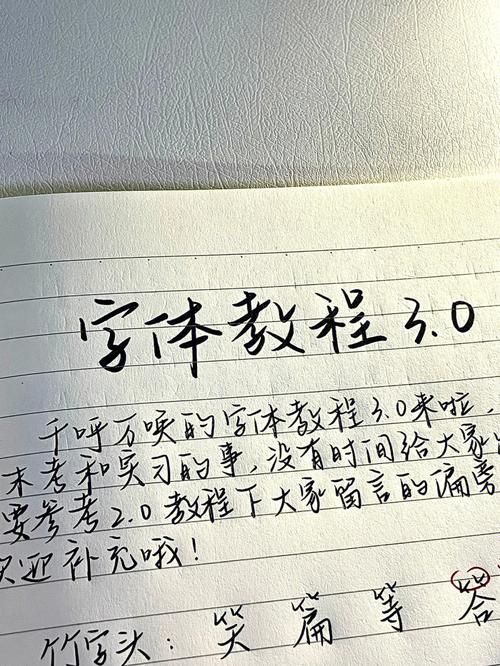 字体教程3.0
千呼万唤的字体教程3.0来啦，
末考和实习的事，没有时间给大家
要参考2.0教程下大家留言的偏旁
欢迎补充哦！
竹字头：笑 篇 等 答